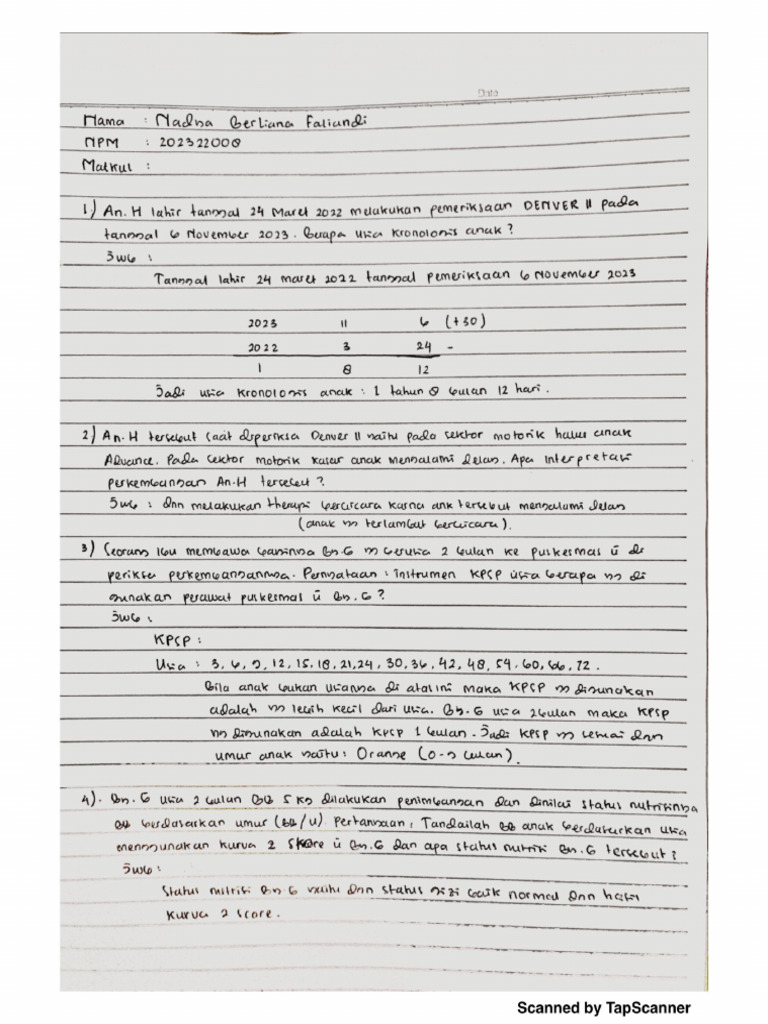 Date
Nama : Nadya Berliana Faliandi
NPM : 202322008
Matkul :
1) An. H lahir tanggal 24 Maret 2022 melakukan pemeriksaan DENVER II pada
tanggal 6 November 2023. Berapa usia kronologis anak ?
Jwb :
Tanggal lahir 24 maret 2022 tanggal pemeriksaan 6 November 2023
2023 11 6 (+30)
2022 3 24 -
1 8 12
Jadi usia kronologis anak : 1 tahun 8 bulan 12 hari.
2) An. H tersebut saat diperiksa Denver II yaitu pada sektor motorik halus anak
Advance. Pada sektor motorik kasar anak mengalami delay. Apa interpretasi
perkembangan An. H tersebut ?
Jwb : dgn melakukan therapi berbicara karna ank tersebut mengalami delay
(anak yg terlambat berbicara).
3) Seorang Ibu membawa bayinya By. G yg berusia 2 bulan ke puskesmas ū di
periksa perkembangannya. Pernyataan : instrumen KPSP usia berapa yg di
gunakan perawat puskesmas ū By. G ?
Jwb :
KPSP :
Usia : 3, 6, 9, 12, 15, 18, 21, 24, 30, 36, 42, 48, 54, 60, 66, 72.
Bila anak bukan usianya di atas ini maka KPSP yg digunakan
adalah yg lebih kecil dari usia. By. G usia 2 bulan maka KPSP
yg digunakan adalah KPSP 1 bulan. Jadi KPSP yg sesuai dgn
umur anak yaitu : Orange (0-9 bulan).
4). By. G usia 2 bulan BB 5 kg dilakukan penimbangan dan dinilai status nutrisinya
BB berdasarkan umur (BB/U) pertanyaan : Tandailah BB anak berdasarkan usia
menggunakan kurva 2 skore ū By. G dan apa status nutrisi By. G tersebut ?
Jwb :
Status nutrisi By. G yaitu dgn status gizi baik normal dgn hasil
kurva 2 score.
Scanned by TapScanner